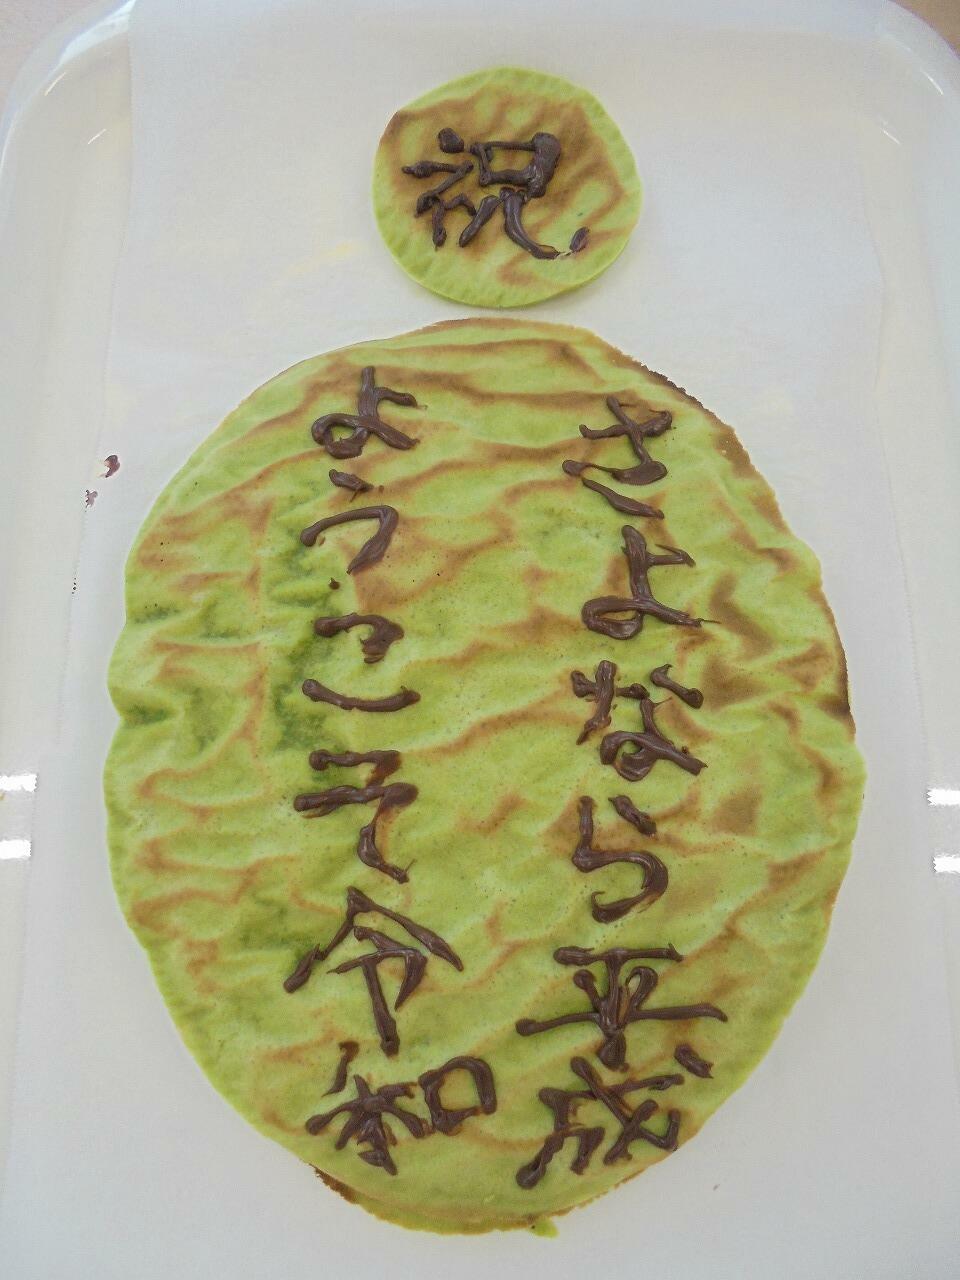 祝
さよなら平成
ようこそ令和